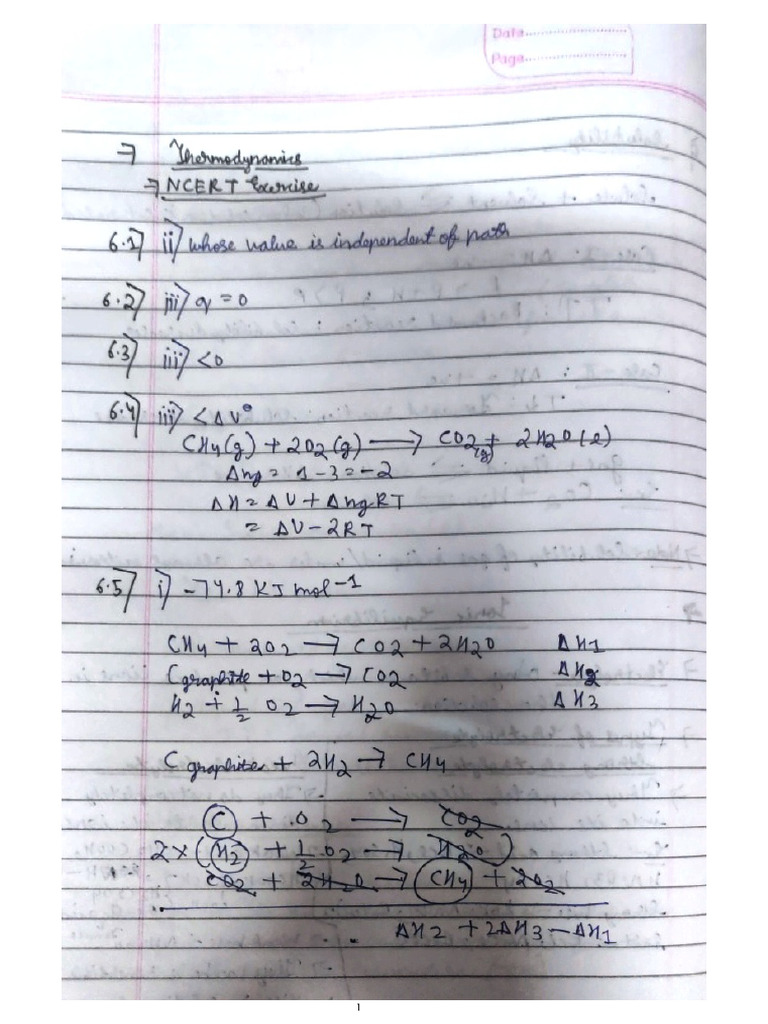 Date...........................
Page...........................
→ Thermodynamics
→ NCERT Exercise
6.1) ii) whose value is independent of path
6.2) iii) q = 0
6.3) iii) <0
6.4) iii) < ΔU°
CH4(g) + 2O2(g) → CO2(g) + 2H2O(l)
Δng = 1 - 3 = -2
ΔH = ΔU + ΔngRT
= ΔU - 2RT
6.5) i) -74.8 KJ mol-1
CH4 + 2O2 → CO2 + 2H2O ΔH1
Cgraphite + O2 → CO2 ΔH2
H2 + 1/2 O2 → H2O ΔH3
C graphite + 2H2 → CH4
C + O2 → CO2
2 x (H2 + 1/2 O2 → H2O)
CO2 + 2H2O → CH4 + 2O2
ΔH2 + 2ΔH3 - ΔH1
1